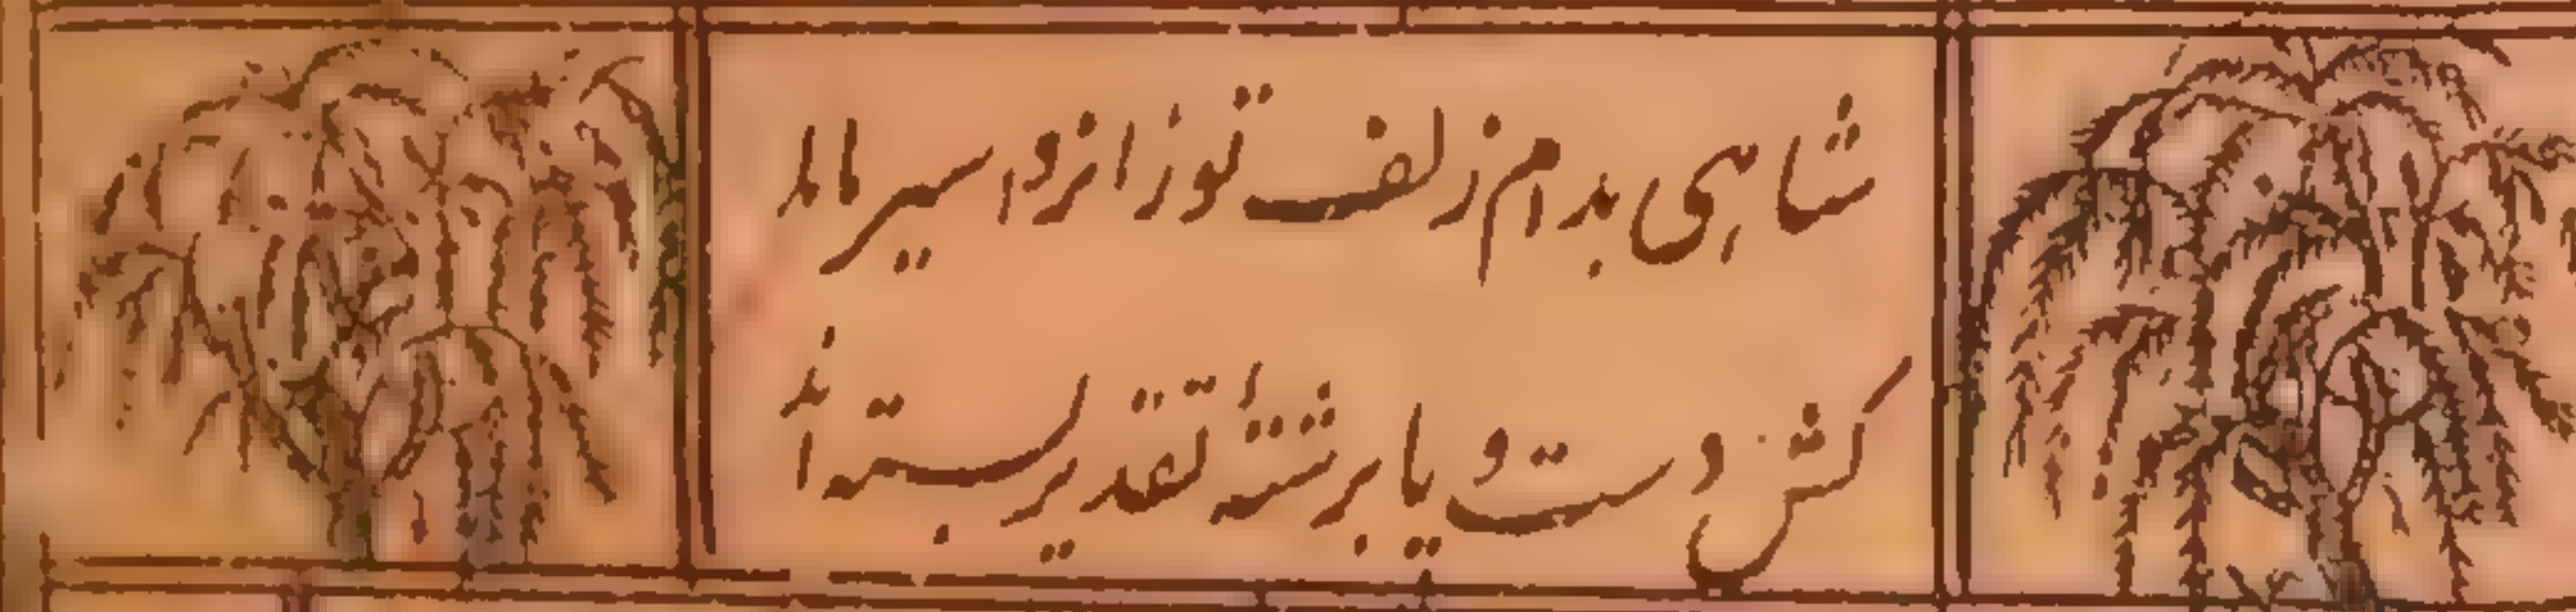 شاهی بدام زلف تو زانرو اسیر ماند
کش دست و پا برشتهٔ تقدیر بسته اند